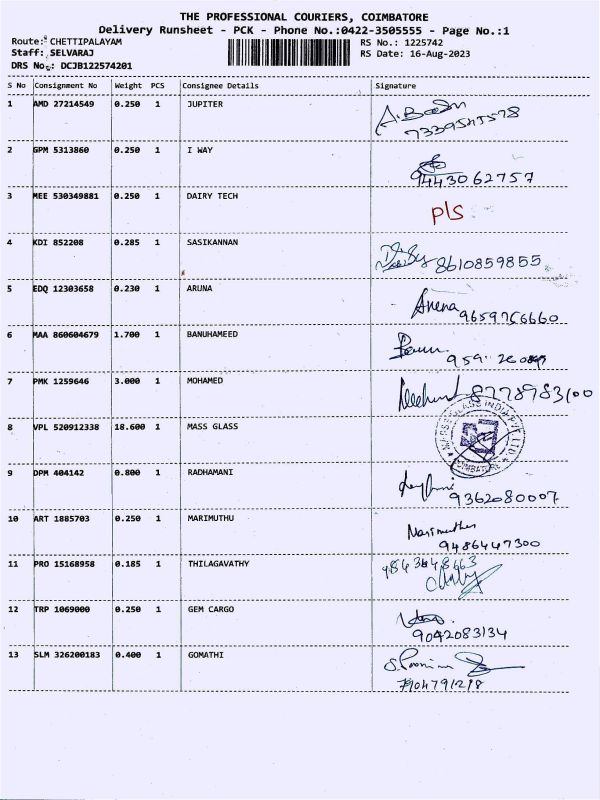 THE PROFESSIONAL COURIERS, COIMBATORE
Delivery Runsheet - PCK - Phone No.:0422-3505555 - Page No.:1
Route: CHETTIPALAYAM RS No.: 1225742
Staff: SELVARAJ RS Date: 16-Aug-2023
DRS No.: DCJB122574201
S No Consignment No Weight PCS Consignee Details Signature
1 AMD 27214549 0.250 1 JUPITER
7339545578
2 GPM 5313860 0.250 1 I WAY
9443062757
3 MEE 530349881 0.250 1 DAIRY TECH P/S
4 KDI 852208 0.285 1 SASIKANNAN 8610859855
5 EDQ 12303658 0.230 1 ARUNA Aruna
9659766660
6 MAA 860604679 1.700 1 BANUHAMEED
7 PMK 1259646 3.000 1 MOHAMED 8778983100
8 VPL 520912338 18.600 1 MASS GLASS
COIMBATORE
9 DPM 404142 0.800 1 RADHAMANI
9362080007
10 ART 1885703 0.250 1 MARIMUTHU Marimuthu
9486447300
11 PRO 15168958 0.185 1 THILAGAVATHY
12 TRP 1069000 0.250 1 GEM CARGO
9042083134
13 SLM 326200183 0.400 1 GOMATHI
7904791218